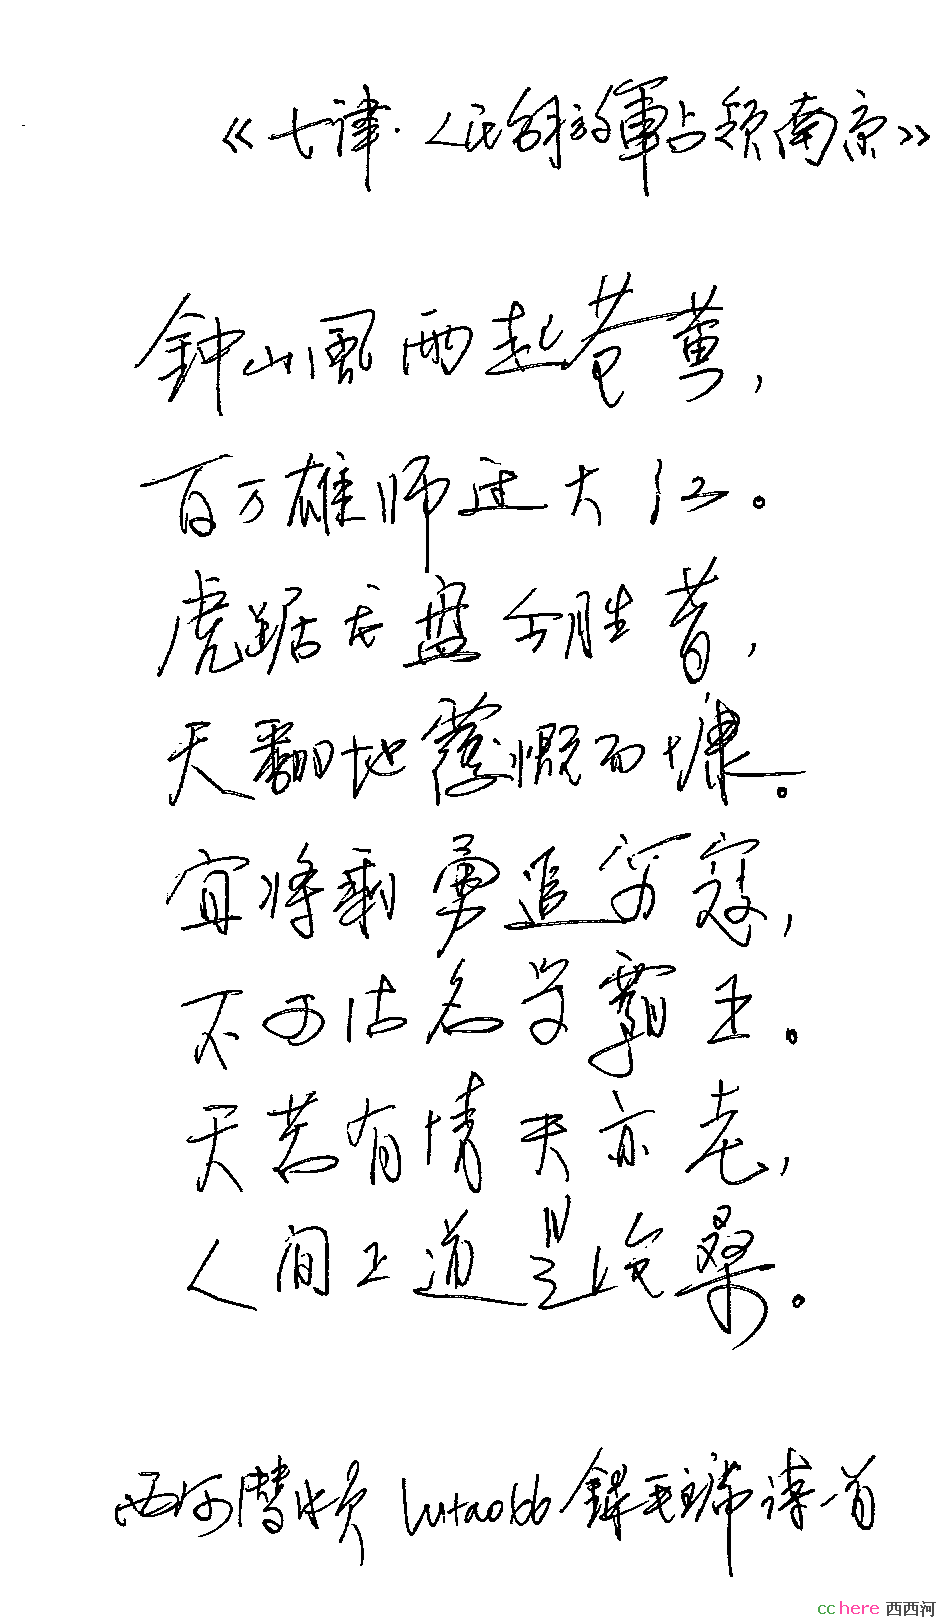 《七律·人民解放軍占領南京》
鈡山風雨起苍黄，
百万雄师过大江。
虎踞龙盘今胜昔，
天翻地覆慨而慷。
宜将剩勇追穷寇，
不可沽名学霸王。
天若有情天亦老，
人间正道是沧桑。
西河潜水员 lutao66 錄毛主席诗一首
cchere 西西河